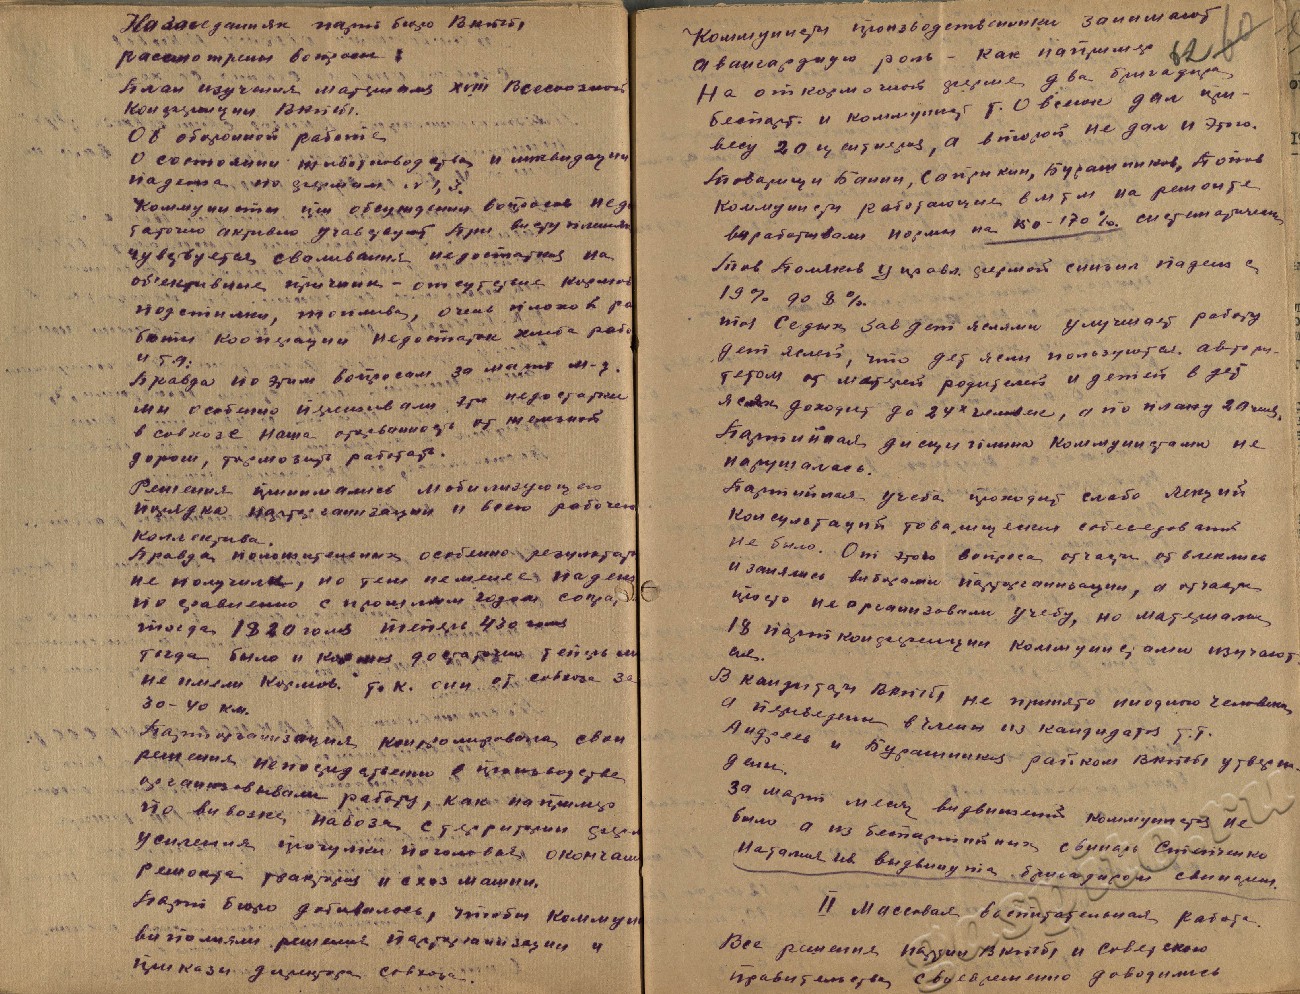 На заседаниях парт бюро ВКП(б)
рассмотрены вопросы:
План изучения материала XVIII Всесоюзной
Конференции ВКП(б).
Об оборонной работе
О состоянии животноводства и ликвидации
падежа по фермам № 1,
Коммунисты при обсуждении вопросов недо
таточно активно учавствуют При выступлениях
чувствуется сваливания недостатков на
обективные причины - отсутствие кормов
подстилки, топлива, очень плохо в ра
боты кооперации недостаток хлеба рабо
и т.д.
Правда по этим вопросам за март м-ц.
мы особенно переживали эти недостатки
в совхозе Наша оторванность от железной
дороги, тормозит работать.
Решения принимались мобилизующего
порядка парторганизации и всего рабочего
коллектива.
Правда положительных особенно результатов
не получили, но тем неменее падеж
по сравнению с прошлым годом сокра
тогда 1820 голов теперь 430 голов
тогда было и кормов достаточно теперь мы
не имели кормов. т.к. они от совхоза за
30-40 км.
Парторганизация контролировала свои
решения непосредственно в производстве
организовывали работу, как например
по вывозке навоза с территории ферм
усиления прогулки поголовья, окончании
ремонта тракторов и с хоз машин.
Парт бюро добивалось, чтобы коммуни
выполняли решения парторганизации и
приказы директора совхоза.
62 60
Коммунисты производственники занимают
авангардную роль - как например
На откормочной ферме два бригадира
беспарт. и коммунист т. Овсюк дал при-
весу 20 центнеров, а второй не дал и этого.
Товарищи Банин, Сапрыкин, Бурашников, Попов
коммунисты работающие в мтм на ремонте
вырабатывали нормы на 150-170%. систематически
Тов Поляков управл фермой снизил падеж с
19% до 8%.
тов Седых зав дет яслями улучшает работу
дет яслей, что дет ясли пользуются автори-
тетом от матерей родителей и детей в дет
яслях доходит до 24х человек, а по плану 20 чел.
Партийная дисциплина коммунистами не
нарушалась.
Партийная учеба проходит слабо лекций
консультаций товарищеских собеседований
не было. От этого вопроса отчасти отвлеклись
и занялись выборами парторганизации, а отчасти
просто не организовали учебу, но материалы
18 парт конференции коммунистами изучают-
ся.
В кандидаты ВКП(б) не принято ниодного человека,
а переведены в члены из кандидатов т.т.
Андреев и Бурашников райком ВКП(б) утверж-
дены.
За март месяц выдвижений коммунистов не
было а из беспартийных свинарь Степченко
Наталия ив выдвинута бригадиром свинарем.
II Массовая воспитательная работа.
Все решения партии ВКП(б) и советского
правительства своевременно доводились
gaspito.ru